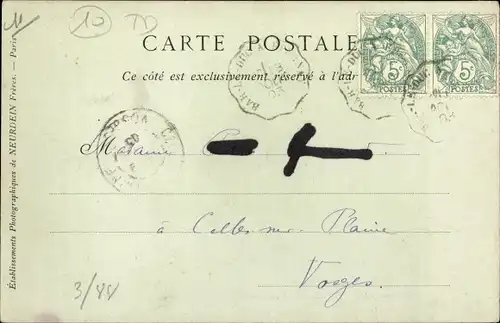 10 TD
CARTE POSTALE
Ce côté est exclusivement réservé à l'adr
5c 5c
POSTES POSTES
BAR-LE-DUC
Madame
à Celles-sur-Plaine
Vosges.
3/88
Établissements Photographiques de NEURDEIN Frères. — Paris